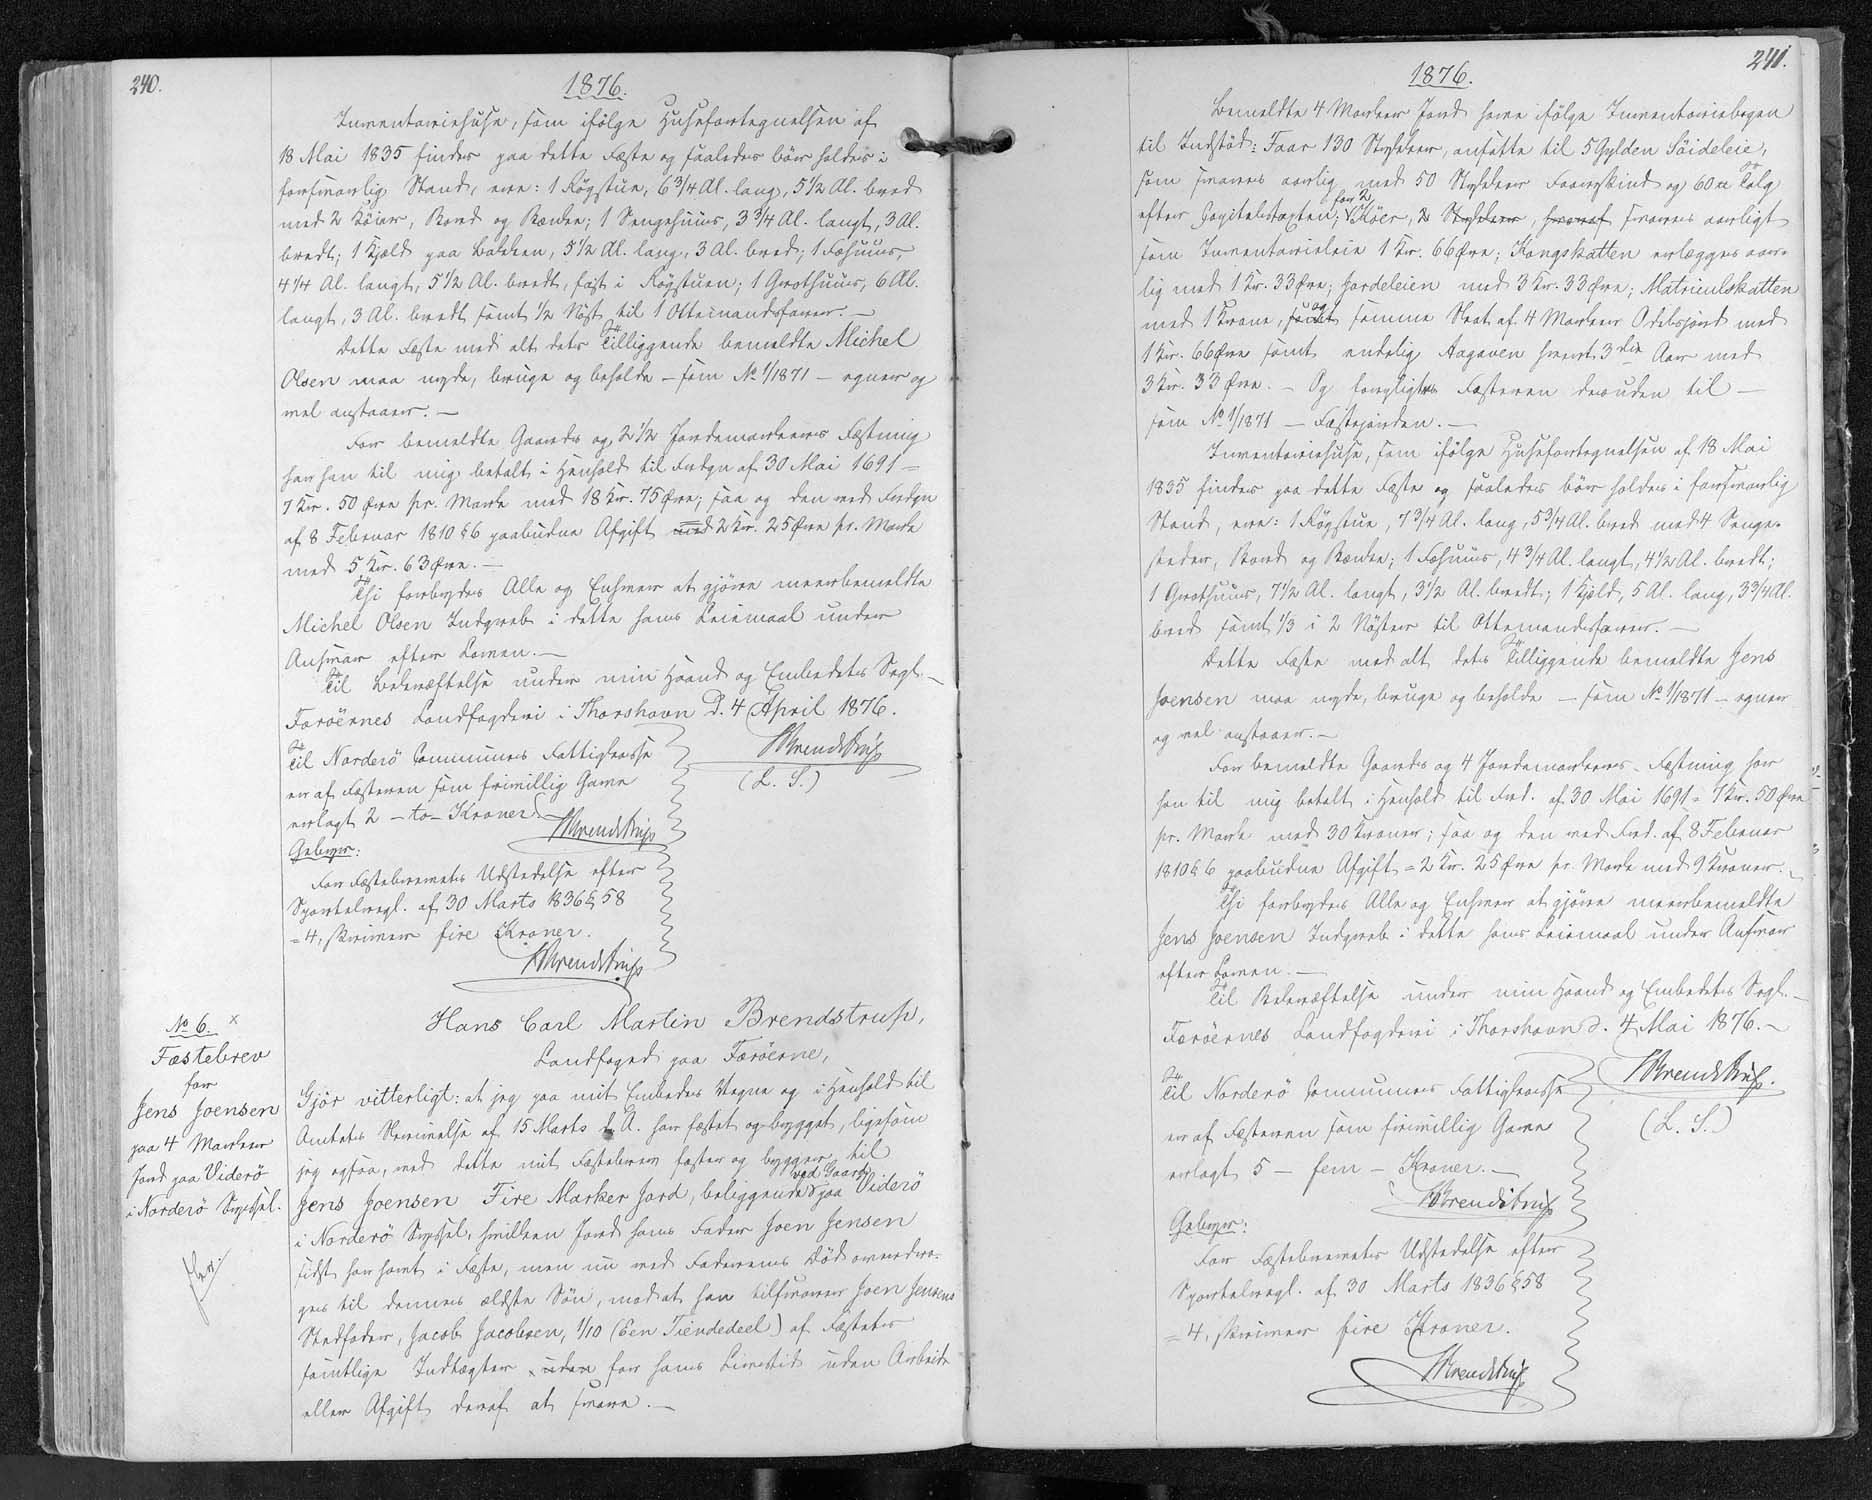 240.
1876.
Inventariehuse, som ifölge Husefortegnelsen af
18 Mai 1835 findes paa dette Fæste og saaledes bör holdes i
forsvarlig Stand, ere: 1 Rögstue, 6 3/4 Al. lang, 5 1/2 Al. bred
med 2 Köier, Bord og Bænke; 1 Sengehuus, 3 3/4 Al. langt, 3 Al.
bredt; 1 Kjeld paa Bakken, 5 1/2 Al. lang, 3 Al. bred; 1 Fæhuus,
4 1/4 Al. langt, 5 1/2 Al. bredt, fast i Rögstuen; 1 Grothuus, 6 Al.
langt, 3 Al. bredt samt 1/2 Nöst til 1 Ottemandsfarer. —
Dette Fæste med alt dets Tilliggende bemeldte Michel
Olsen maa nyde, bruge og beholde – som No 1/1871 – egner og
vel anstaaer. —
For bemeldte Gaards og 2 1/2 Jordemarkers Fæstning
har han til mig betalt i Henhold til Frdgn af 30 Mai 1691 =
7 Kr. 50 Øre pr. Mark med 18 Kr. 75 Øre; saa og den ved Frdgn
af 8 Februar 1810 § 6 paabudne Afgift med = 2 Kr. 25 Øre pr. Mark
med 5 Kr. 63 Øre. —
Thi forbydes Alle og Enhver at gjöre meerbemeldte
Michel Olsen Indgreb i dette hans Leiemaal under
Ansvar efter Loven. —
Til Bekræftelse under min Haand og Embedets Segl. —
Færöernes Landfogderi i Thorshavn d. 4 April 1876.
HBrendstrup
(L. S.)
Til Norderö Communes Fattigkasse
er af Fæsteren som frivillig Gave
erlagt 2 – to – Kroner. —
HBrendstrup
Gebyr:
For Fæstebrevets Udstedelse efter
Sportelregl. af 30 Marts 1836 § 58
= 4, skriver fire Kroner.
HBrendstrup
No 6. x
Fæstebrev
for
Jens Joensen
paa 4 Marker
Jord paa Viderö
i Norderö Syssel.
Hans Carl Martin Brendstrup,
Landfoged paa Færöerne,
Gjör vitterligt: at jeg paa mit Embedes Vegne og i Henhold til
Amtets Skrivelse af 15 Marts d. A. har fæstet og bygget, ligesom
jeg ogsaa, med dette mit Fæstebrev fæster og bygger, til
Jens Joensen Fire Marker Jord, beliggende ved Gaard paa Viderö
i Norderö Syssel, hvilken Jord hans Fader Joen Jensen
sidst har havt i Fæste, men nu ved Faderens Död overdra-
ges til dennes ældste Sön, mod at han tilsvarer Joen Jensens
Stedfader, Jacob Jacobsen, 1/10 (Een Tiendedeel) af Fæstets
samtlige Indtægter uden for hans Livstid uden Arbeide
eller Afgift deraf at svare. —
241.
1876.
Bemeldte 4 Marker Jord have ifölge Inventariebogen
til Indstöd: Faar 130 Stykker, ansatte til 5 Gylden Söideleie,
som svares aarlig med 50 Stykker Faareskind og 60 ℔ Talg
efter Capitelstaxten; for 2 Köer, 2 Stykker, hvoraf svares aarligt
som Inventarieleie 1 Kr. 66 Øre; Kongskatten erlægges aar-
lig med 1 Kr. 33 Øre; Jordeleien med 3 Kr. 33 Øre; Matriculskatten
med 1 Krone, samt og samme Skat af 4 Marker Odelsjord med
1 Kr. 66 Øre samt endelig Aagaven hvert 3die Aar med
3 Kr. 33 Øre. – Og forpligtes Fæsteren desuden til —
som No 1/1871 – Fæstejorden. —
Inventariehuse, som ifölge Husefortegnelsen af 18 Mai
1835 findes paa dette Fæste og saaledes bör holdes i forsvarlig
Stand, ere: 1 Rögstue, 7 3/4 Al. lang, 5 3/4 Al. bred med 4 Senge-
steder, Bord og Bænke; 1 Fæhuus, 4 3/4 Al. langt, 4 1/2 Al. bredt;
1 Grothuus, 7 1/2 Al. langt, 3 1/2 Al. bredt; 1 Kjeld, 5 Al. lang, 3 3/4 Al.
bred samt 1/3 i 2 Nöster til Ottemandsfarer. —
Dette Fæste med alt dets Tilliggende bemeldte Jens
Joensen maa nyde, bruge og beholde – som No 1/1871 – egner
og vel anstaaer. —
For bemeldte Gaards og 4 Jordemarkers Fæstning har
han til mig betalt i Henhold til Frd. af 30 Mai 1691 = 7 Kr. 50 Øre
pr. Mark med 30 Kroner; saa og den ved Frd. af 8 Februar
1810 § 6 paabudne Afgift = 2 Kr. 25 Øre pr. Mark med 9 Kroner. —
Thi forbydes Alle og Enhver at gjöre meerbemeldte
Jens Joensen Indgreb i dette hans Leiemaal under Ansvar
efter Loven. —
Til Bekræftelse under min Haand og Embedets Segl. —
Færöernes Landfogderi i Thorshavn d. 4 Mai 1876. —
HBrendstrup.
(L. S.)
Til Norderö Communes Fattigkasse
er af Fæsteren som frivillig Gave
erlagt 5 – fem – Kroner. —
HBrendstrup
Gebyr:
For Fæstebrevets Udstedelse efter
Sportelregl. af 30 Marts 1836 § 58
= 4, skriver fire Kroner.
HBrendstrup